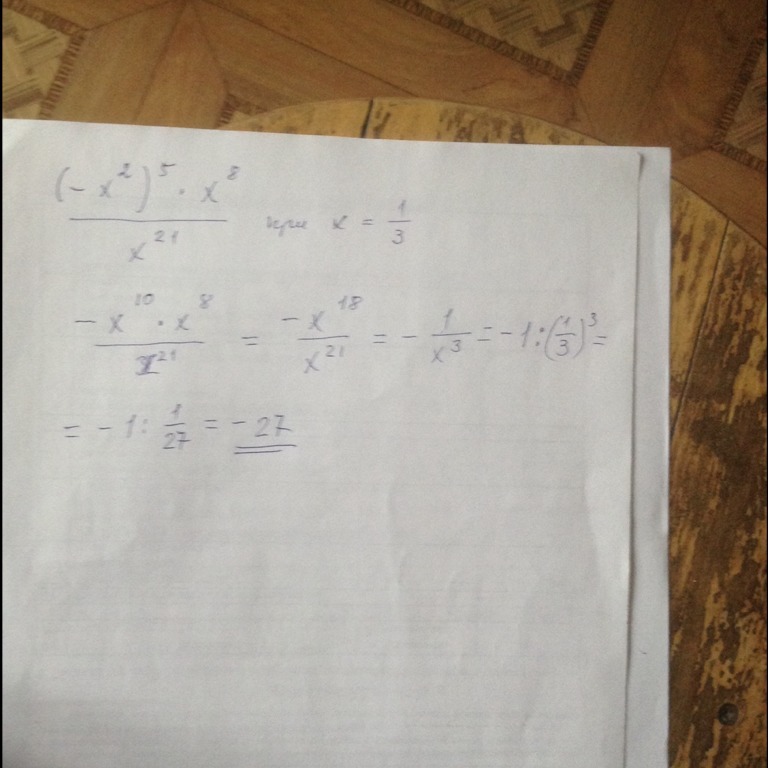 (-x²)⁵ · x⁸ / x²¹ при x = 1/3
-x¹⁰ · x⁸ / x²¹ = -x¹⁸ / x²¹ = - 1/x³ = -1:(1/3)³ =
= -1 : 1/27 = -27